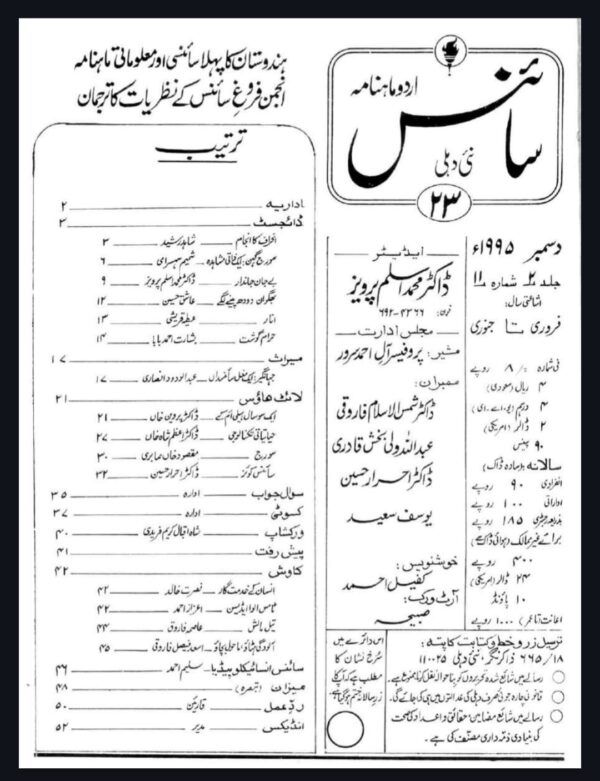 ہندوستان کا پہلا سائنسی اور معلوماتی ماہنامہ
انجمن فروغِ سائنس کے نظریات کا ترجمان
ترتیب
اداریہ ۲
ڈائجسٹ ۳
افراف کا انجام شاہد رشید ۳
سورج گہن: ایک خلائی مشاہدہ شمیم سہسرامی ۶
بے جان جاندار ڈاکٹر محمد اسلم پرویز ۹
بھگوان دودھ پینے لگے عاشق حسین ۱۲
انار عبطہ قریشی ۱۳
حرام گوشت بشارت احمد بابا ۱۴
میراث ۱۷
جہانگیر: ایک مغل سائنسداں عبدالودود انصاری ۱۷
لائٹ ہاؤس ۲۱
ایک سو سال پہلی ایکس رے ڈاکٹر پروین خاں ۲۱
حیاتیاتی تکنالوجی ڈاکٹر اعظم شاہ خاں ۲۷
سورج مقصود خاں صابری ۳۰
سائنس کوئز ڈاکٹر احرار حسین ۳۲
سوال جواب ادارہ ۳۵
کسوٹی ادارہ ۳۷
ورکشاپ شاہ اقبال کریم فریدی ۴۰
پیش رفت ۴۱
کاوش ۴۲
انسان کے خدمت گار نصرت خالد ۴۲
تھامس الوا ایڈیسن اعزاز احمد ۴۲
تیل مالش عاصمہ فاروق ۴۴
آلودگی ہٹاؤ ماحول بچاؤ اسعد فیصل فاروقی ۴۵
سائنس انسائیکلوپیڈیا سلیم احمد ۴۶
میزان (تبصرہ) ۴۸
ردِّ عمل قارئین ۵۰
انڈیکس مدیر ۵۲
اردو ماہنامہ
سائنس
نئی دہلی
۲۳
ایڈیٹر
ڈاکٹر محمد اسلم پرویز
فون: ۶۹۲-۴۳۶۶
مجلس ادارت
مشیر: پروفیسر آل احمد سرور
ممبران:
ڈاکٹر شمس الاسلام فاروقی
عبداللہ ولی بخش قادری
ڈاکٹر احرار حسین
یوسف سعید
خوشنویس:
کفیل احمد
آرٹ ورک:
صبیحہ
دسمبر ۱۹۹۵ء
جلد ۲ شمارہ ۱۱
اشاعتی سال:
فروری تا جنوری
فی شمارہ ۸/۰ روپے
۴ ریال (سعودی)
۴ درہم (یو۔اے۔ای)
۲ ڈالر (امریکی)
۹۰ پینس
سالانہ (بذریعہ سادہ ڈاک)
انفرادی ۹۰ روپے
اداراتی ۱۰۰ روپے
بذریعہ رجسٹری ۱۸۵ روپے
برائے غیر ممالک (ہوائی ڈاک سے)
۴۰۰ روپے
۲۴ ڈالر (امریکی)
۱۰ پاؤنڈ
اعانت تاعمر ۱۰۰۰ روپے
اس دائرے میں
سُرخ نشان کا
مطلب ہے کہ آپ کا
زرِ سالانہ ختم ہو گیا ہے
ترسیل زر و خط و کتابت کا پتہ:
۶۶۵/۱۸ ذاکر نگر، نئی دہلی ۱۱۰۰۲۵
رسالے میں شائع شدہ تحریروں کو بِنا حوالہ نقل کرنا ممنوع ہے۔
قانونی چارہ جوئی صرف دہلی کی عدالتوں میں ہی کی جائے گی۔
رسالے میں شائع مضامین حقائق و اعداد کی صحت
کی بنیادی ذمہ داری مصنف کی ہے۔